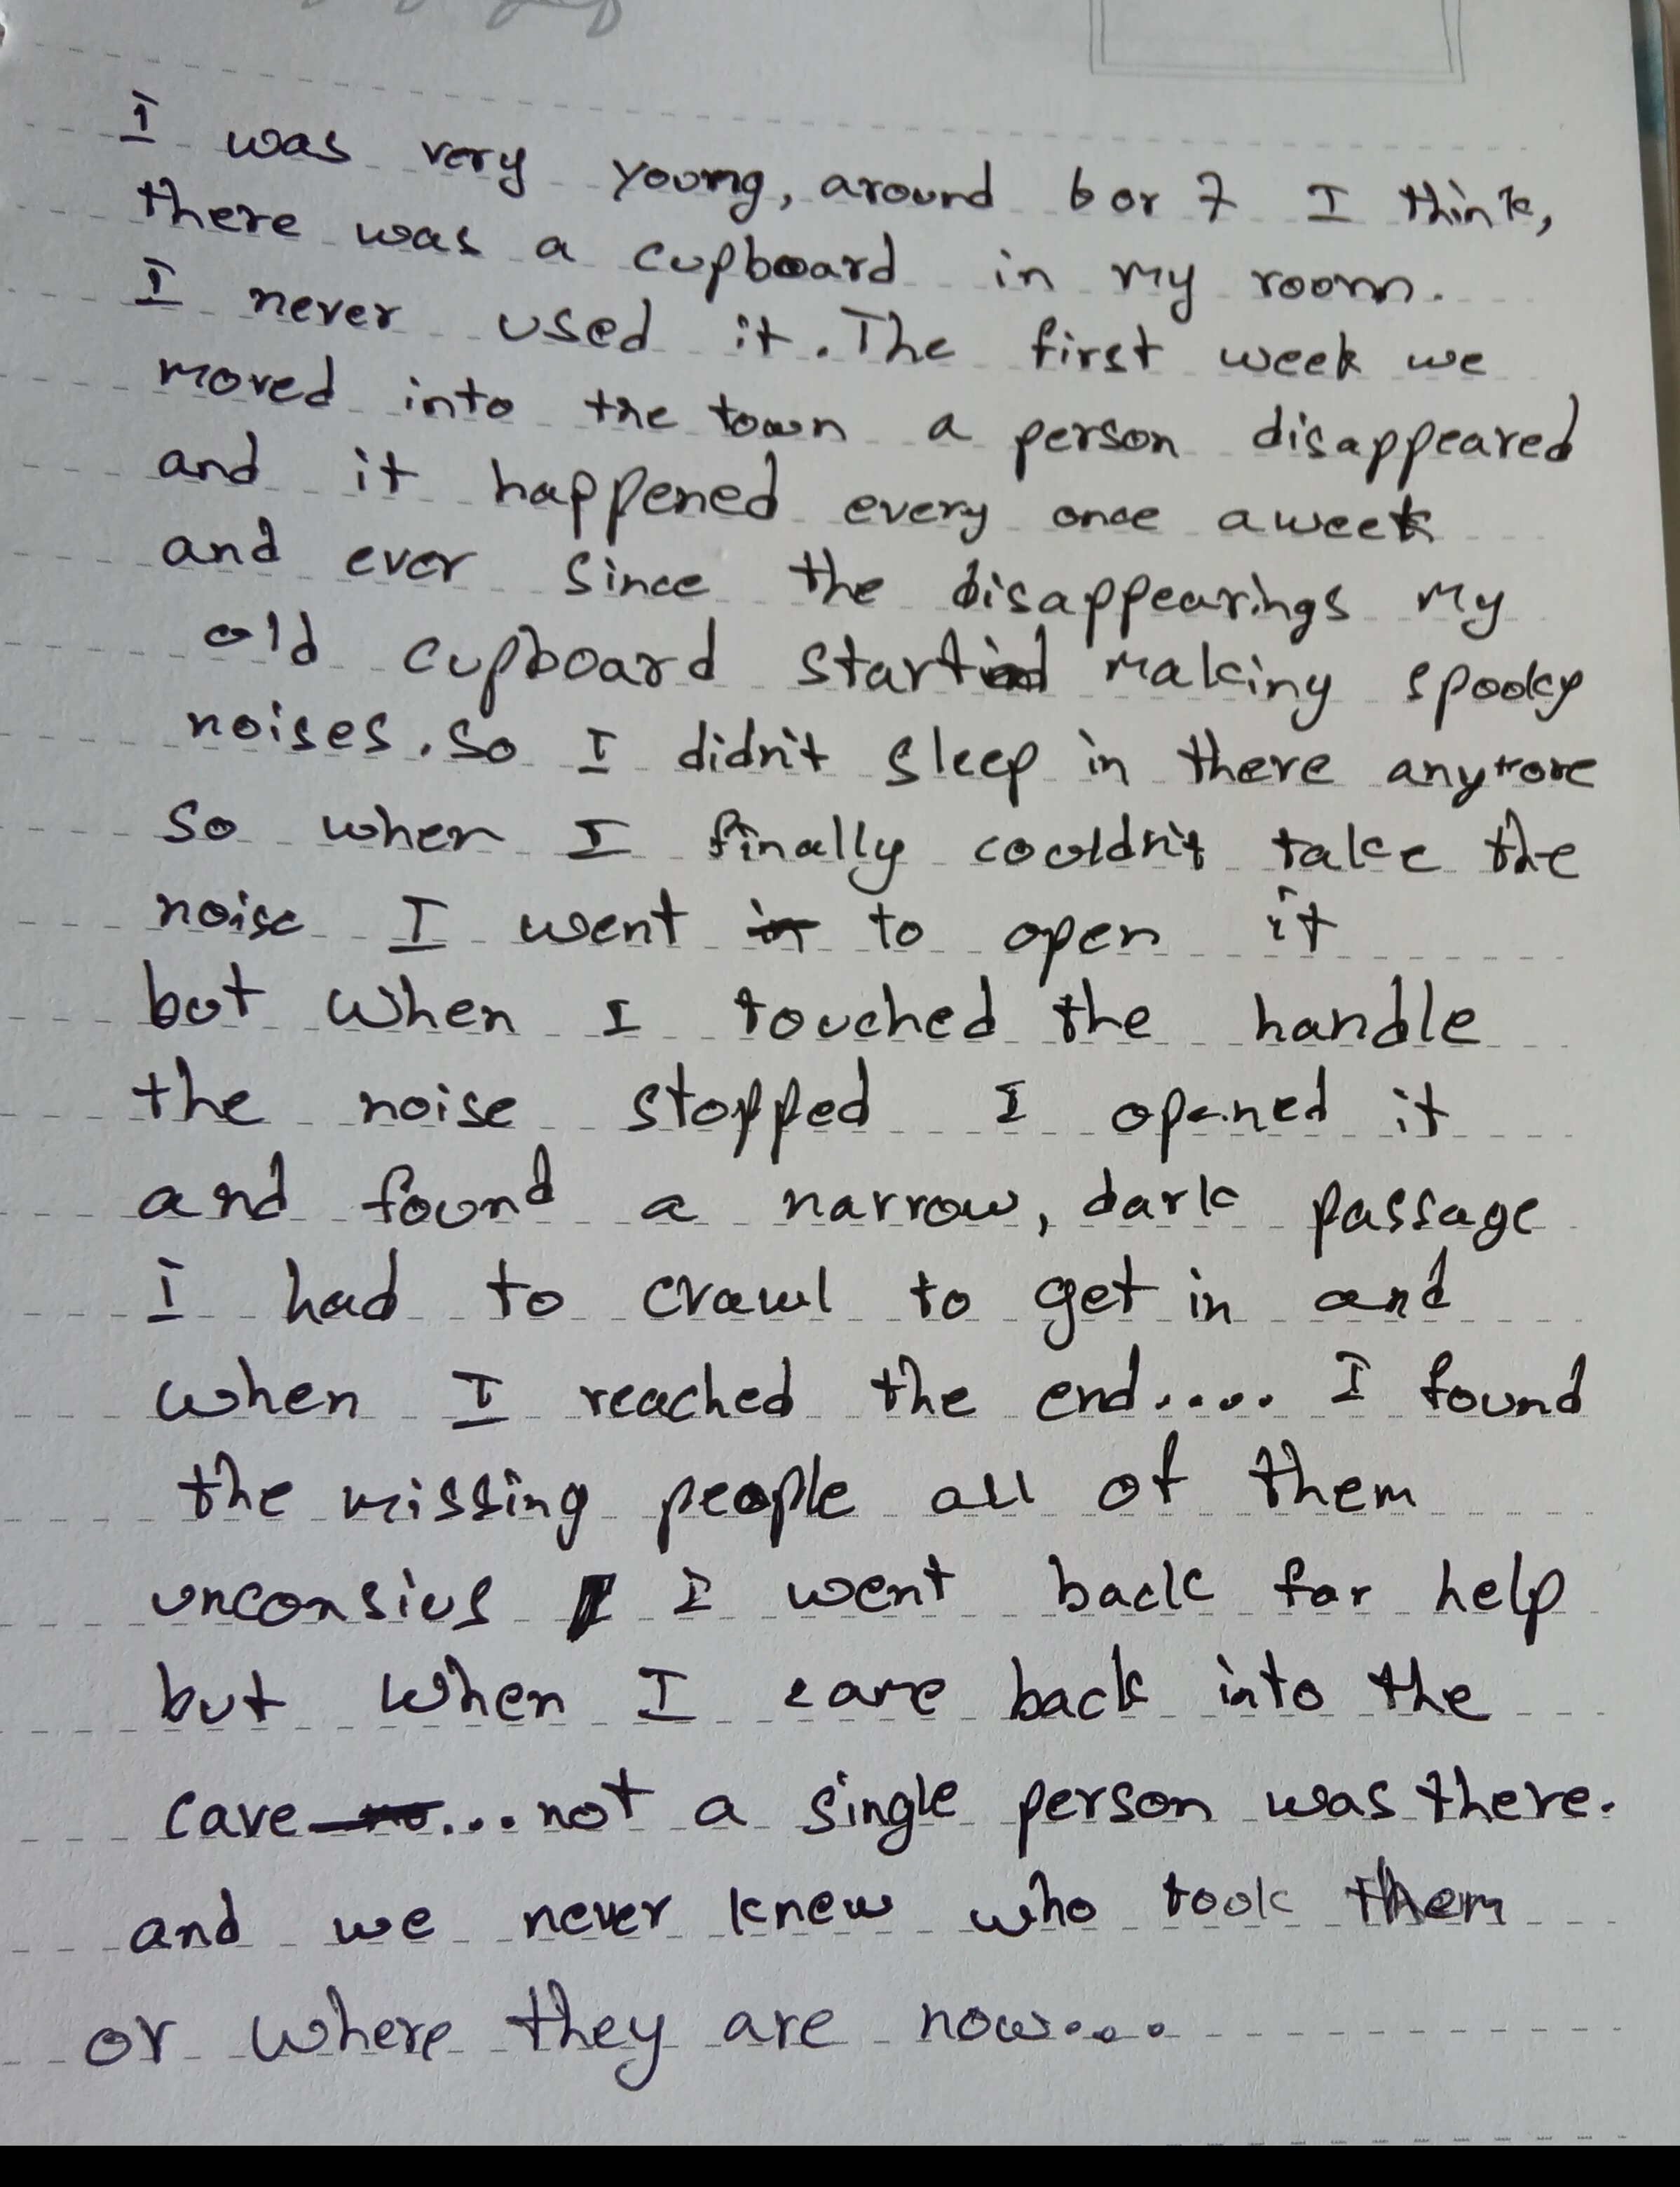 I was very young, around 6 or 7 I think,
there was a cupboard in my room.
I never used it. The first week we
moved into the town a person disappeared
and it happened every once a week
and ever since the disappearings my
old cupboard started making spooky
noises. so I didn't sleep in there anymore
so when I finally couldn't take the
noise I went to open it
but when I touched the handle
the noise stopped I opened it
and found a narrow, dark passage
I had to crawl to get in and
when I reached the end.... I found
the missing people all of them
unconsius I went back for help
but when I came back into the
cave ... not a single person was there.
and we never knew who took them
or where they are now....